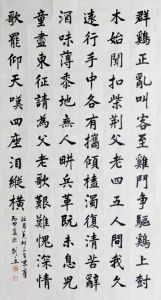 群鷄正亂叫客至雞鬥爭驅鷄上樹
木始聞扣柴荊父老四五人問我久
遠行手中各有攜傾榼濁復清苦辭
酒味薄黍地無人耕兵革既未息兒
童盡東征請為父老歌艱難愧深情
歌罷仰天嘆四座淚縱橫
杜甫羌村三首